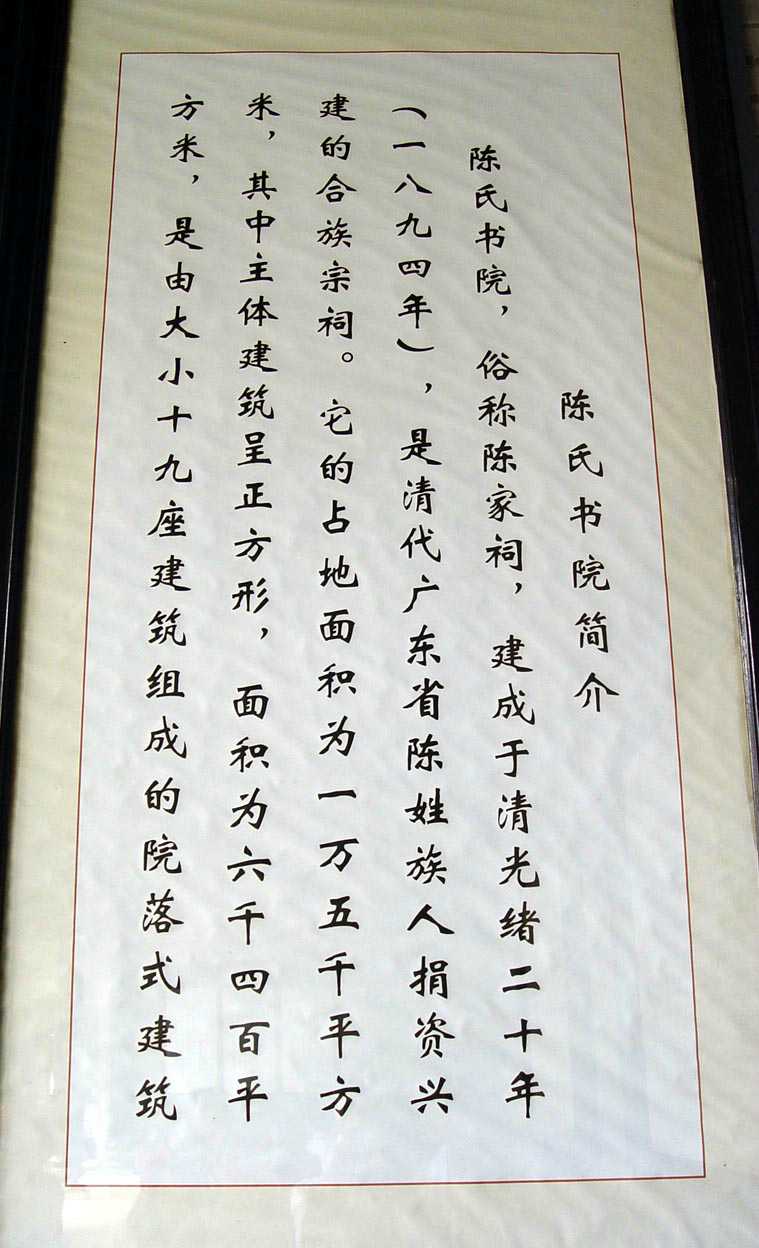 陈氏书院简介
陈氏书院，俗称陈家祠，建成于清光绪二十年
（一八九四年），是清代广东省陈姓族人捐资兴
建的合族宗祠。它的占地面积为一万五千平方
米，其中主体建筑呈正方形，面积为六千四百平
方米，是由大小十九座建筑组成的院落式建筑